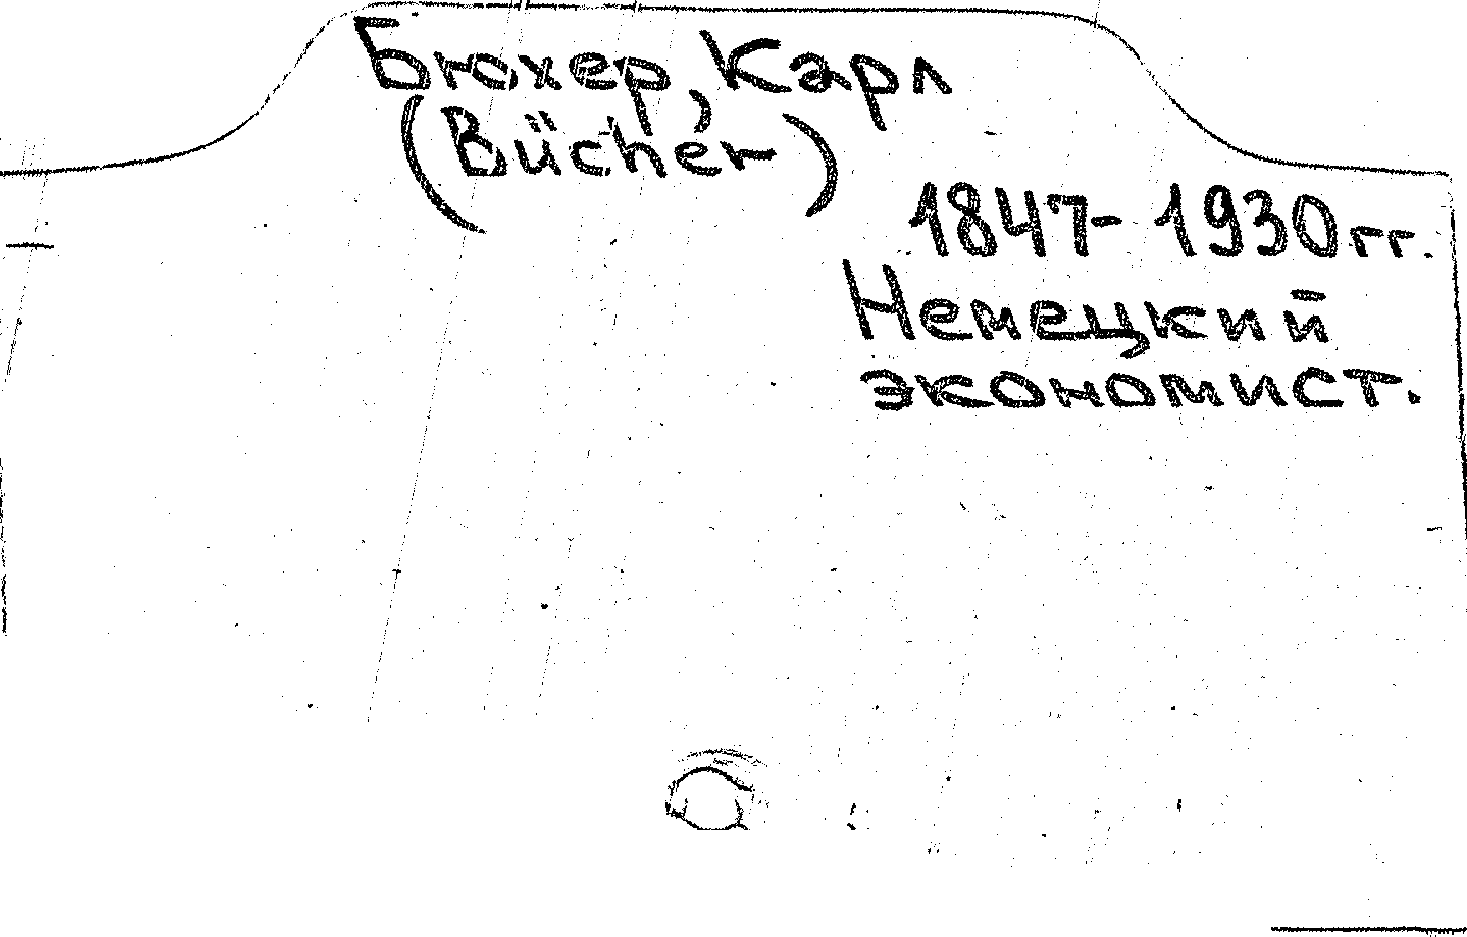 Бюхер, Карл
(Bücher)
1847-1930 гг.
Немецкий
экономист.